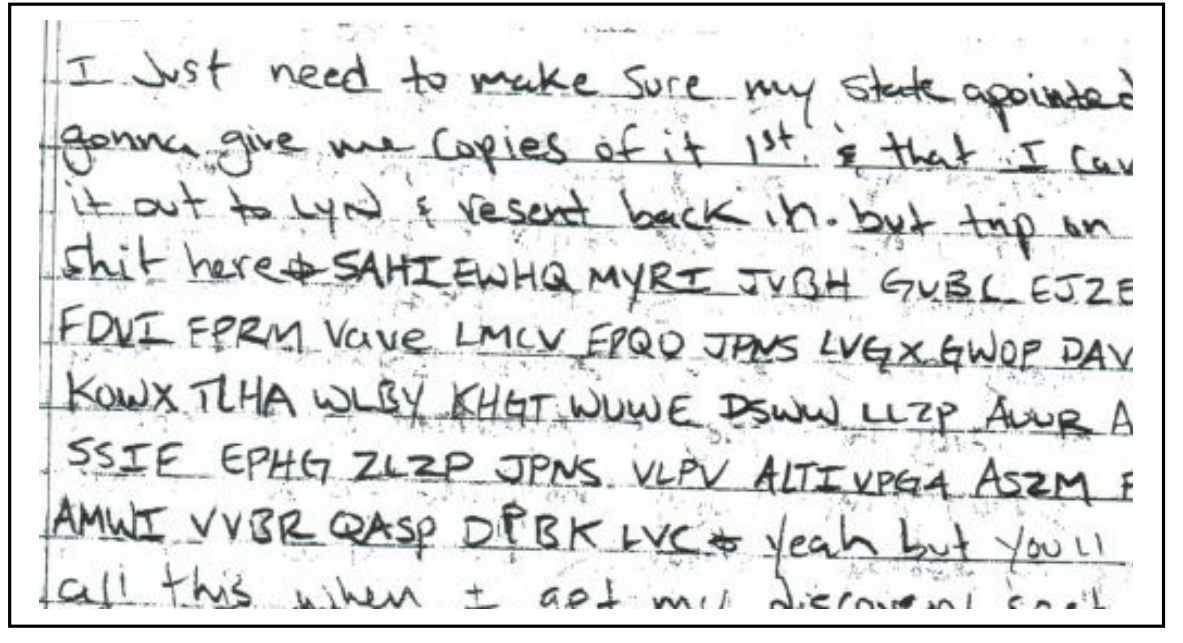 I Just need to make Sure my state apointed
gonna give me Copies of it 1st. & that I Can
it out to LyN & resent back in. but trip on
shit here → SAHIEWHQ MYRI JVBH GVBL EJZE
FDVI EPRM Vave LMCV EPQO JPNS LVGX GWOP DAV
KOWX TLHA WLBY KHGT WUWE DSWW LLZP AUUR A
SSIE EPHG ZLZP JPNS VLPV ALTIVPGA ASZM
AMWI VVBR QASP DPBK LVC → yeah but you'll
all this when I get my